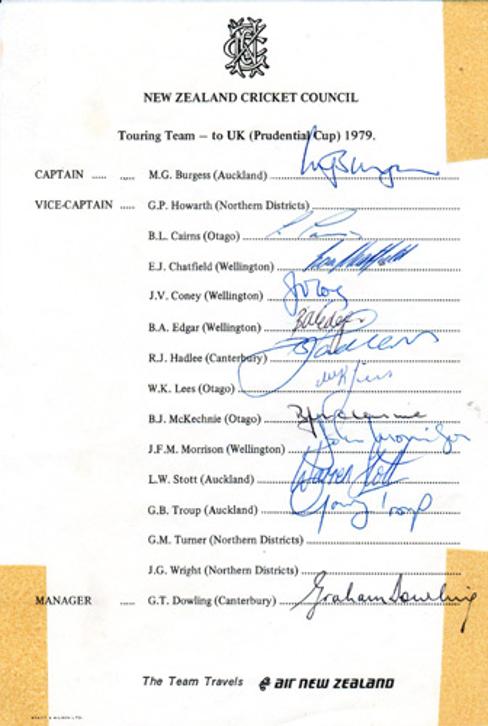 NEW ZEALAND CRICKET COUNCIL
Touring Team — to UK (Prudential Cup) 1979.
CAPTAIN ..... ..... M.G. Burgess (Auckland)
VICE-CAPTAIN ..... G.P. Howarth (Northern Districts)
B.L. Cairns (Otago)
E.J. Chatfield (Wellington)
J.V. Coney (Wellington)
B.A. Edgar (Wellington)
R.J. Hadlee (Canterbury)
W.K. Lees (Otago)
B.J. McKechnie (Otago)
J.F.M. Morrison (Wellington) John Morrison
L.W. Stott (Auckland) Warren Stott
G.B. Troup (Auckland) Gary Troup
G.M. Turner (Northern Districts)
J.G. Wright (Northern Districts)
MANAGER ..... G.T. Dowling (Canterbury) Graham Dowling
The Team Travels air new zealand